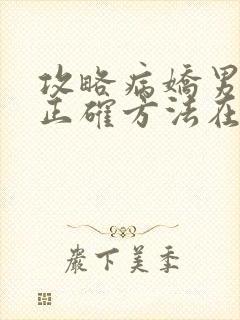 攻略病嬌男
正確方法在
嚴下美季